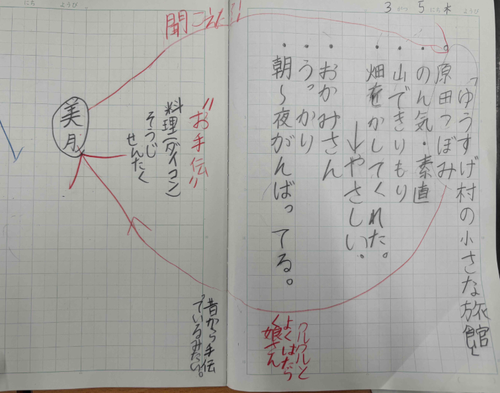 3 5 木
「ゆうすげ村の小さな旅館」
原田つぼみ
・のん気・素直
・山できりもり
・畑をかしてくれた。
↓やさしい。
・おかみさん
・うっかり
・朝～夜がんばってる。
クルクルと
よくはたらく
娘さん
聞こえた!!
"お手伝"
料理(ダイコン)
そうじ
せんたく
美月
昔から手伝
ているみたい。